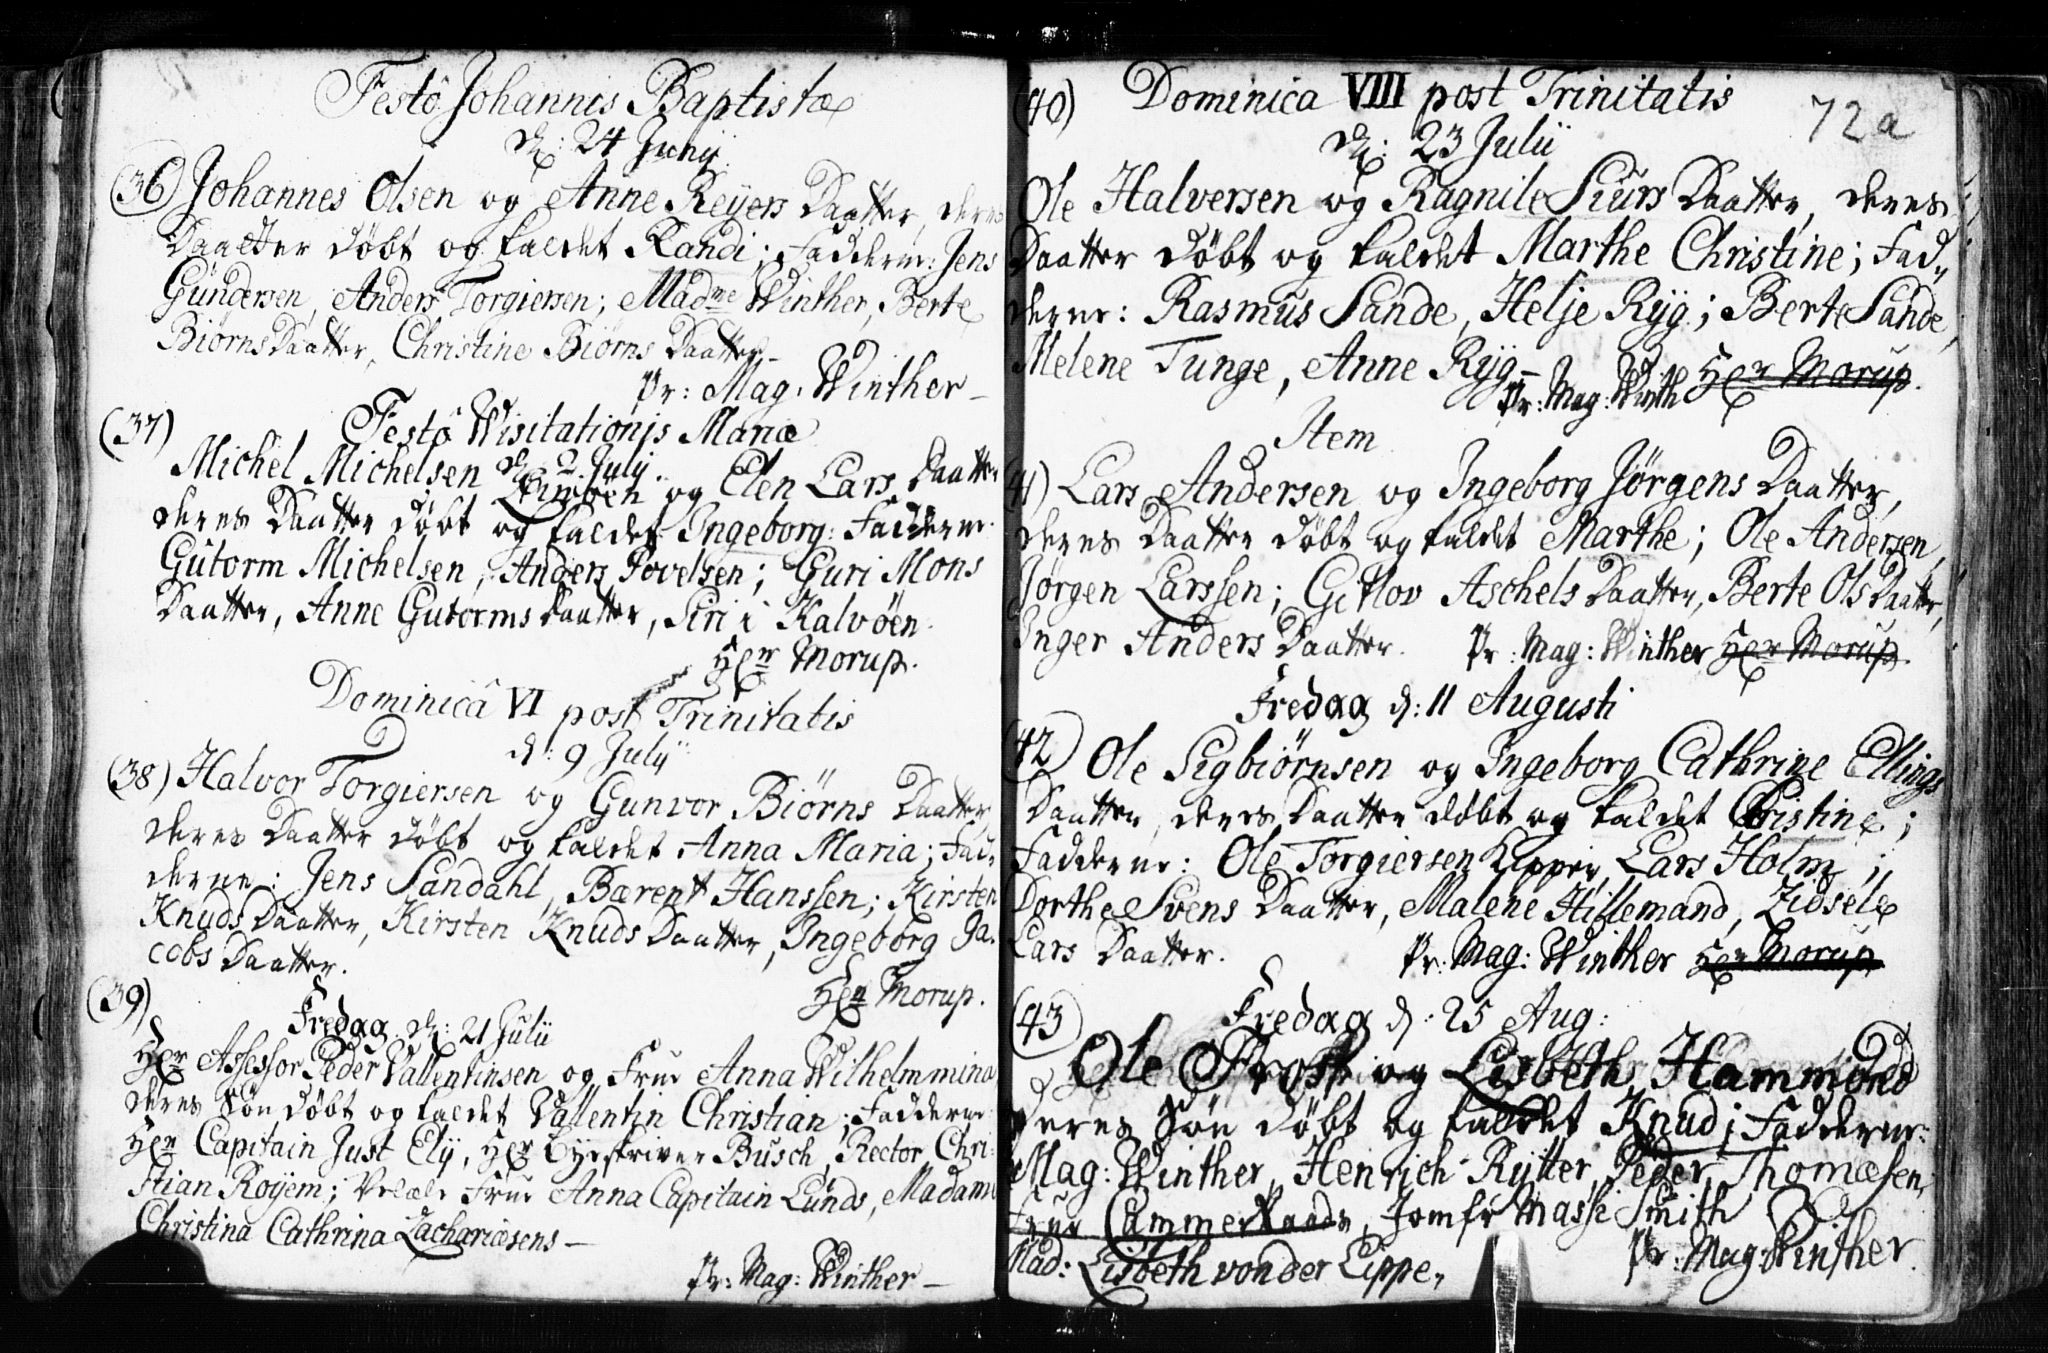 Festô Johannis Baptistæ
d: 24 Junij
(36) Johannes Olsen og Anne Reyers Daatter, deres
Daatter döbt og kaldet Randi; Fadderne: Jens
Gündersen, Anders Torgiersen; Madme Winther, Berte
BiörnsDaatter, Christine Biörns Daatter –
Pr: Mag: Winther –
(37) Festô Wisitationis Mariæ
d. 2 July
Michel Michelsen og Elen Lars Daatter
deres Daatter döbt og kaldet Ingeborg: Fadderne
Gütorm Michelsen, Anders Povelsen; Guri Mons
Daatter, Anne Gutorms Daatter, Siri i Kalvöen.
Hr Morup.
Dominicâ VI post Trinitatis
d: 9 July
(38) Halvor Torgiersen og Gunvor Biörns Daatter
deres Daatter döbt og kaldet Anna Maria; Fad-
derne: Jens Sandahl, Bærent Hanssen; Kirsten
KnudsDaatter, Kirsten KnudsDaatter, Ingeborg Ja-
cobs Daatter.
Hr Morup.
(39)
Fredag d: 21 Julii
Hr Assessor Peder Vallentinsen og Frue Anna Wilhelmmina
deres Sön döbt og kaldet Vallentin Christian; Fadderne
Hr Capitain Just Ely, Hr Byeskriver Büsch, Rector Chri-
stian Royem; Frue Anna Capitain Lünds, Madame
Christina Cathrina Zachariæsens –
Pr: Mag: Winther –
72a
(40) Dominica VIII post Trinitatis
d: 23 Julii
Ole Halversen og Ragnile Siurs Daatter, deres
Daatter döbt og kaldet Marthe Christine; Fad-
derne: Rasmüs Sande, Helje Ryg; Berte Sande,
Melene Tunge, Anne Ryg –
Pr: Mag: Winth Hr Morup.
Item
41) Lars Andersen og Ingeborg Jörgens Daatter,
deres Daatter döbt og kaldet Marthe; Ole Andersen,
Jörgen Larssen; Gitlov Aschels Daatter, Berte Ols Daatter,
Inger Anders Daatter. Pr: Mag: Winther Hr Morup.
Fredag d: 11 Augusti
42 Ole Sigbiörnsen og Ingeborg Cathrine Ellings
Daatter, deres Daatter döbt og kaldet Christine;
Fadderne: Ole Torgiersen Kipper, Lars Holm;
Dorthe Svens Daatter, Malene Hillemand, Zidsele
Lars Daatter. Pr: Mag: Winther Hr Morup
(43) Fredag d: 25 Aug:
Ole Frost og Lisbeth Hammond
deres Sön döbt og kaldet Knud; Fadderne:
Mag: Winther, Henrich Rytter, Peder Thomæsen;
Frue Cammerraads, Jomfr Massi Smith
Mad: Lisbeth von der Lippe,
Pr: Mag: Winther.